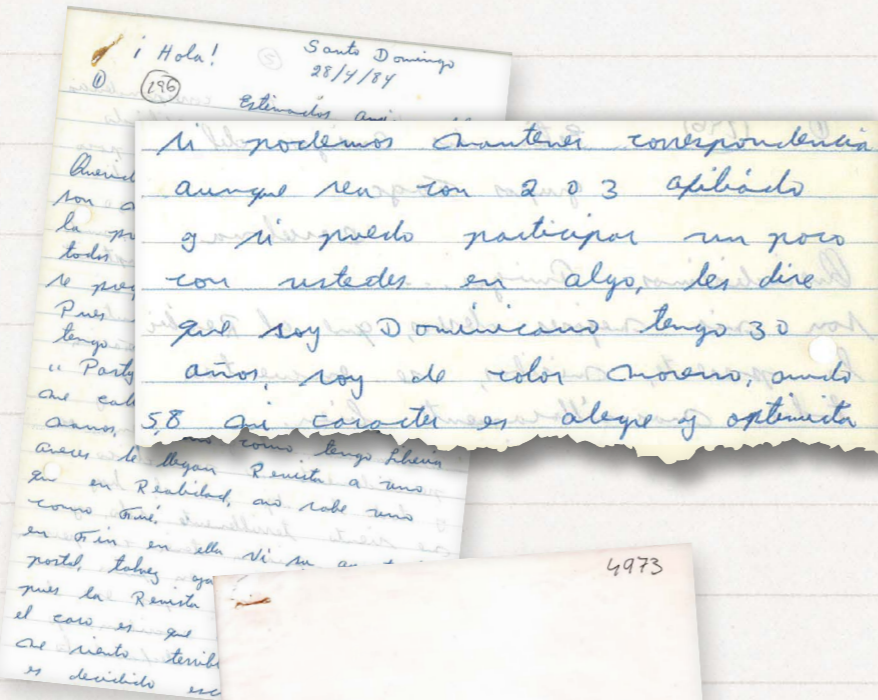 ¡Hola!
Santo Domingo
28/4/84
1
196
Estimados
si podemos mantener correspondencia
aunque sea con 2 o 3 afiliádo
y si puedo participar un poco
con ustedes en algo, les dire
que soy Dominicano tengo 30
años, soy de color moreno, mido
5,8 mi caracter es alegre y optimista
Querid
son
la
todos
se
Pues
tengo
"Party
me
manos,
como tengo
aveces le llegan Revista a uno
que en Reabilad, no sabe uno
como Fué,
en Fin en ella Vi su
postal, talvez
pues la Revista
el caso es que
me siento terrib
es decidido esc
4973